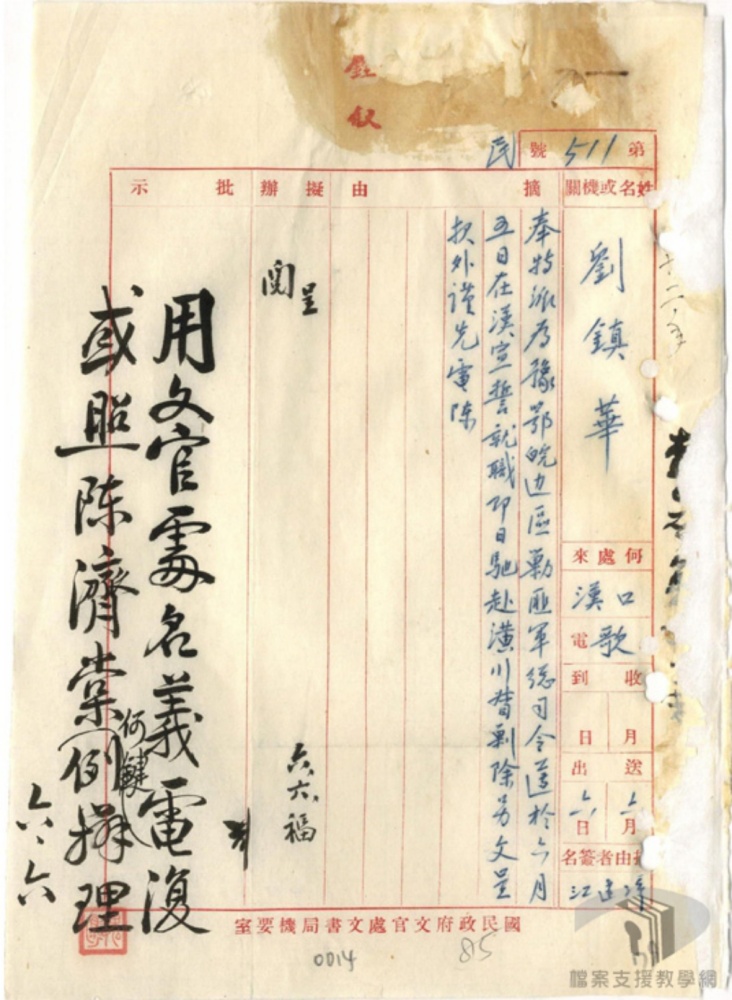 鈺叙
第511號
民
姓名或機關
劉鎮華
何處來
漢口
歌電
收到
月日
送出
六月六日
摘由者簽名
摘由
奉特派為豫鄂皖边區剿匪軍總司令謹於六月
五日在漢宣誓就職即日馳赴潢川督剿除另文呈
报外謹先電陳
擬辦
呈閱
六、六、福
批示
用文官處名義電復
或照陈濟棠何鍵例擇理
六、六
國民政府文官處文書局機要室
0014
815
檔案支援教學網